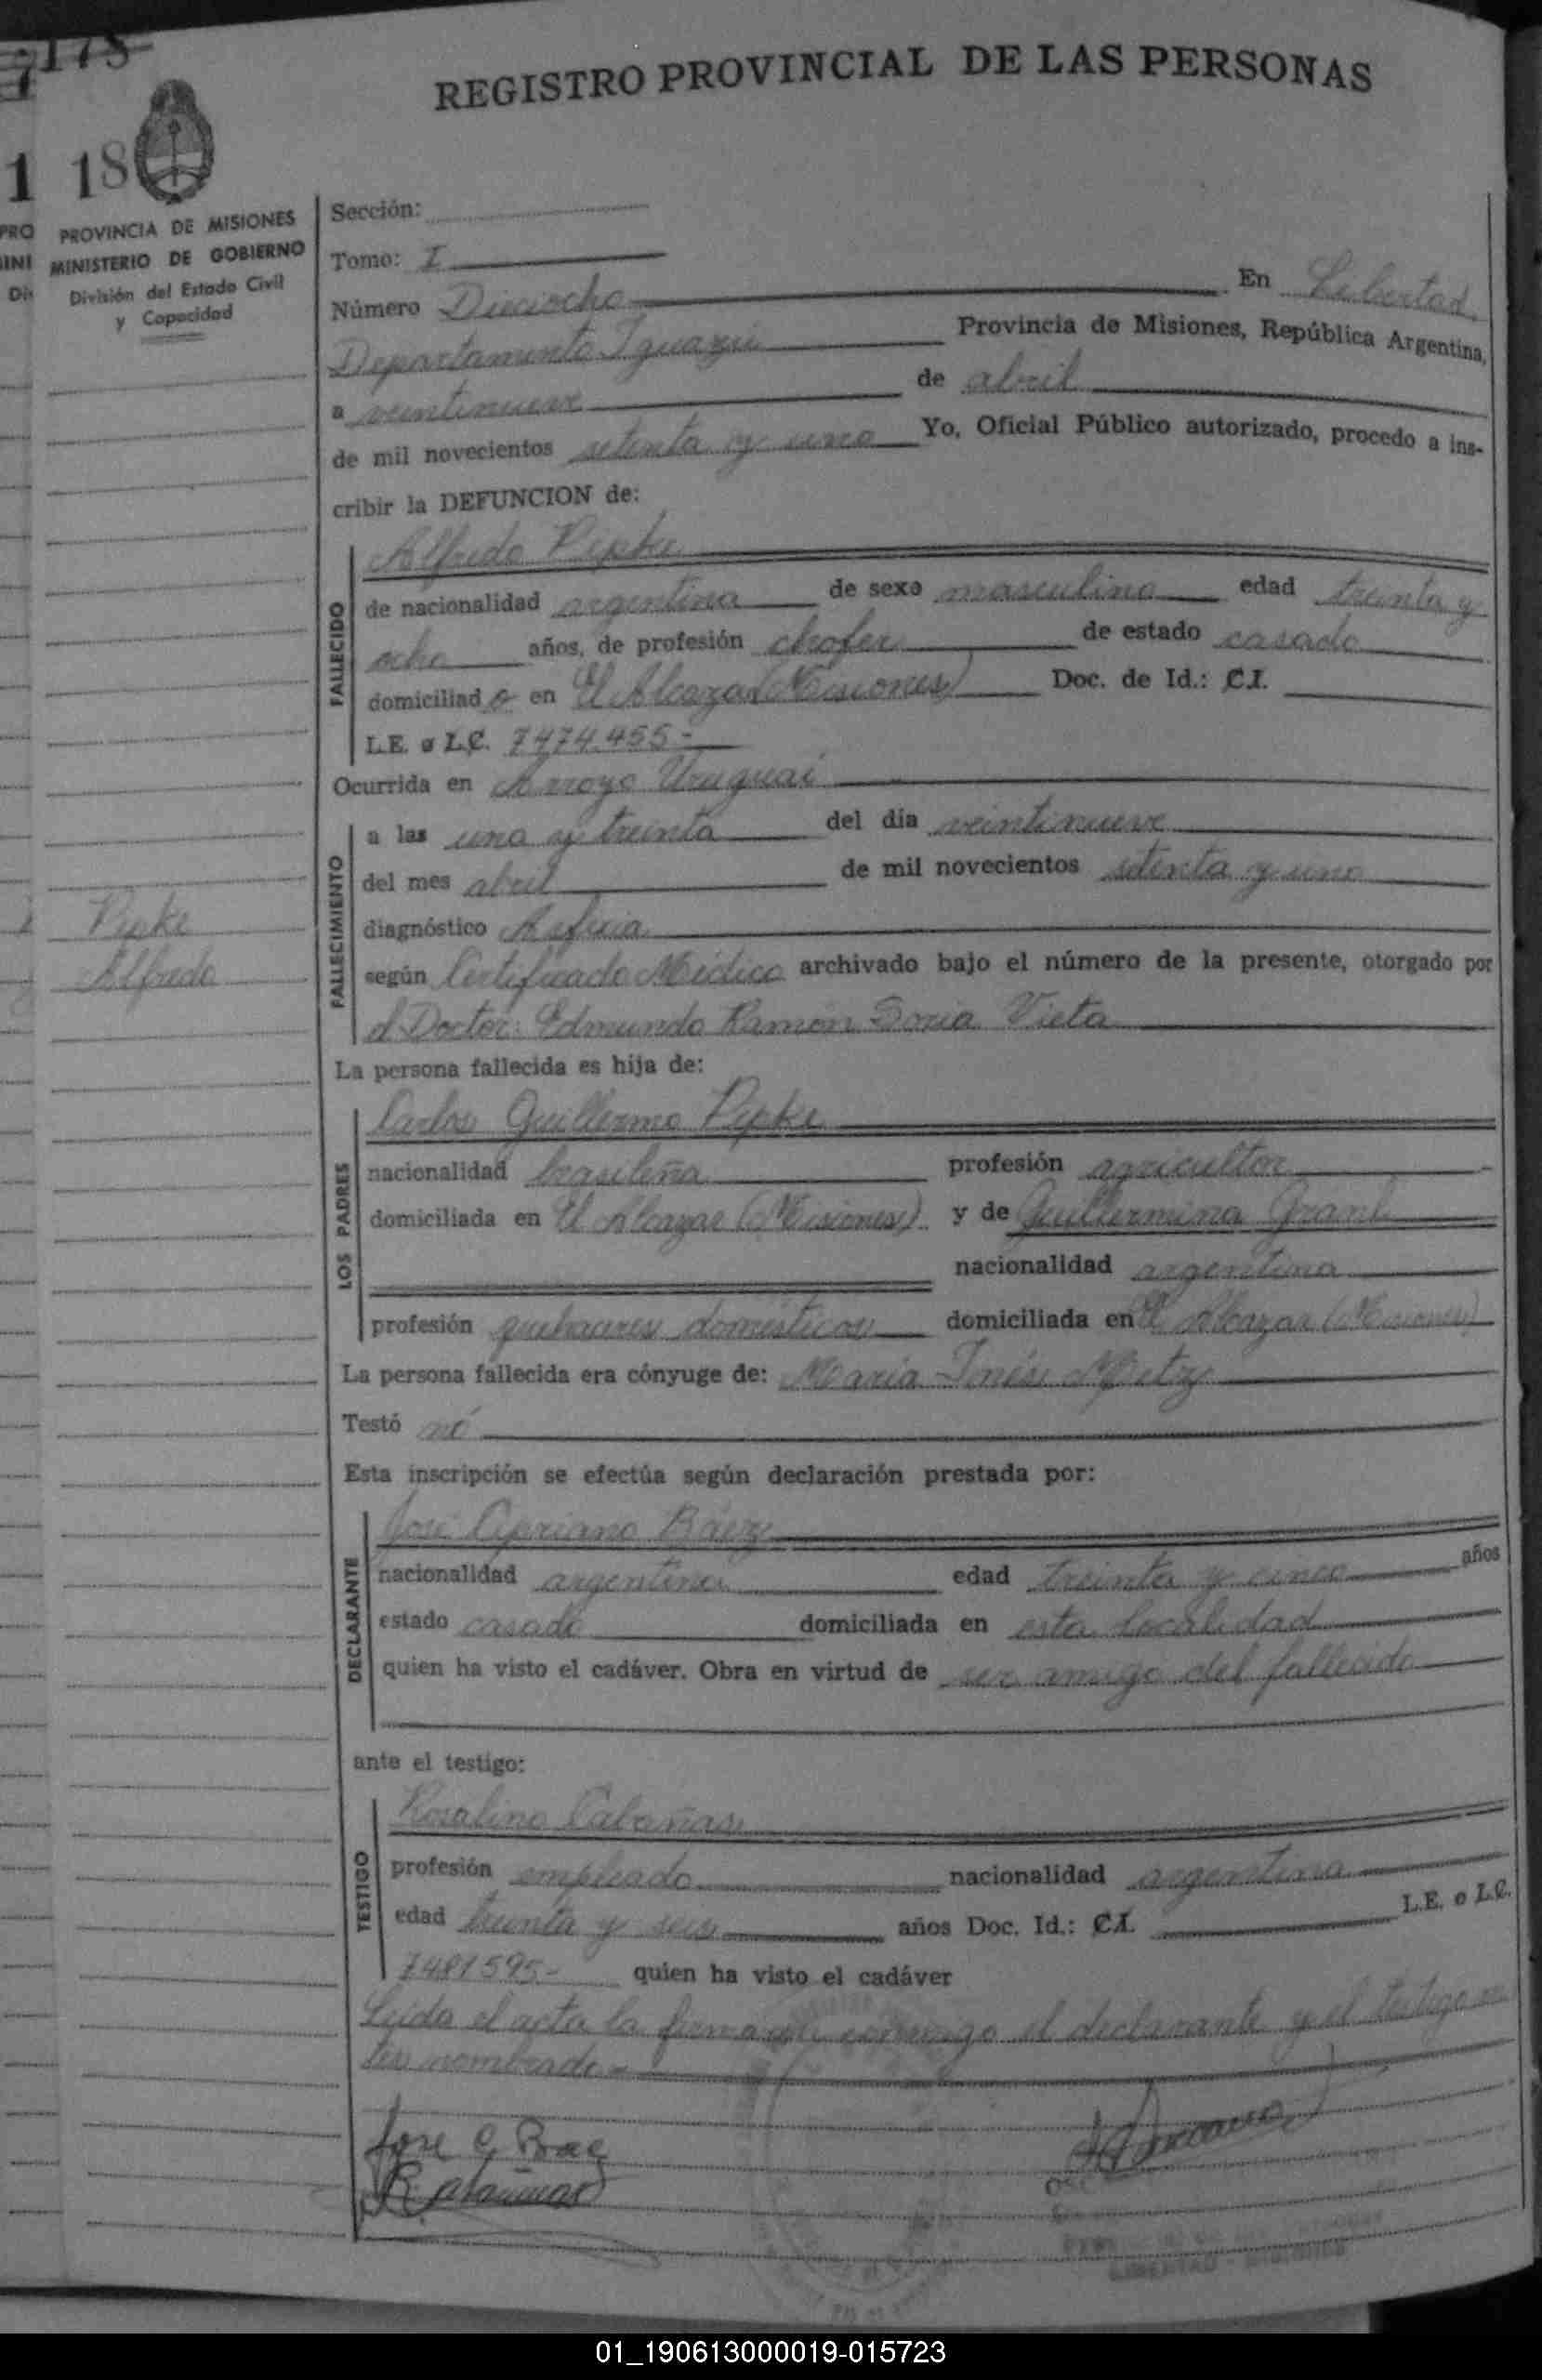 178
REGISTRO PROVINCIAL DE LAS PERSONAS
1 18
PROVINCIA DE MISIONES
MINISTERIO DE GOBIERNO
División del Estado Civil
y Capacidad
Sección:
Tomo: I
Número Dieciocho En Libertad,
Departamento Iguazú Provincia de Misiones, República Argentina,
a veintinueve de abril
de mil novecientos setenta y uno Yo, Oficial Público autorizado, procedo a ins-
cribir la DEFUNCION de:
FALLECIDO
Alfredo Pipke
de nacionalidad argentina de sexo masculino edad treinta y
ocho años, de profesión chofer de estado casado
domiciliado en El Alcazar (Misiones) Doc. de Id.: C.I.
L.E. o L.C. 7474.455-
Ocurrida en Arroyo Uruguai
FALLECIMIENTO
a las una y treinta del día veintinueve
del mes abril de mil novecientos setenta y uno
diagnóstico Asfixia
según Certificado Médico archivado bajo el número de la presente, otorgado por
el Doctor: Edmundo Ramón Soria Vieta
Pipke
Alfredo
La persona fallecida es hija de:
LOS PADRES
Carlos Guillermo Pipke
nacionalidad brasileña profesión agricultor
domiciliada en El Alcazar (Misiones) y de Guillermina
nacionalidad argentina
profesión quehaceres domésticos domiciliada en El Alcazar (Misiones)
La persona fallecida era cónyuge de: María Inés Metz
Testó nó
Esta inscripción se efectúa según declaración prestada por:
DECLARANTE
José Cipriano Báez
nacionalidad argentina edad treinta y cinco años
estado casado domiciliada en esta localidad
quien ha visto el cadáver. Obra en virtud de ser amigo del fallecido
ante el testigo:
TESTIGO
Rosalino Cabañas
profesión empleado nacionalidad argentina
edad treinta y seis años Doc. Id.: C.I. L.E. o L.C.
7481595- quien ha visto el cadáver
Leida el acta la firman conmigo el declarante y el testigo an
tes nombrado-
Jose C Baez
R. Cabañas
LIBERTAD - MISIONES
01_190613000019-015723